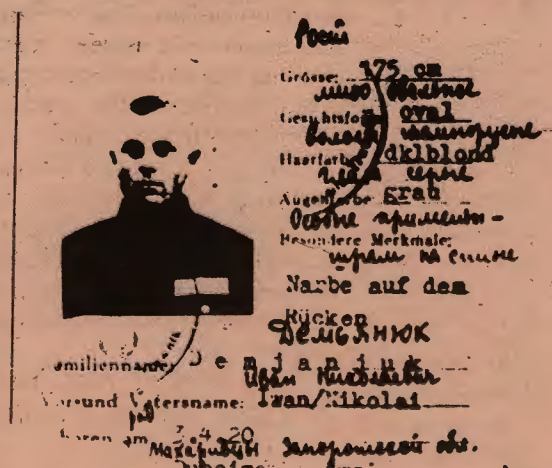 Grösse: 175 cm
лицо овальное
Gesichtsform: oval
волосы
Haarfarbe: dklblond
глаза серые
Augenfarbe: grau
Особые приметы -
Besondere Merkmale:
шрам на спине
Narbe auf dem
Rücken
ДЕМЬЯНЮК
Familienname: Demjaniuk
Иван Николаевич
Vor- und Vatersname: Iwan/Nikolai
geboren am 3.4.20
Запорожской обл.